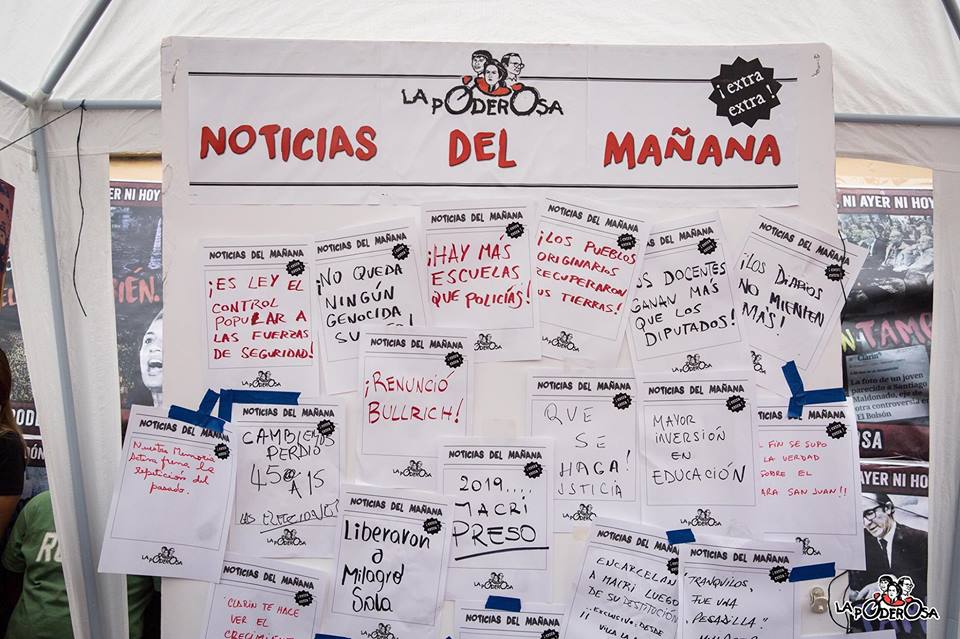 LA PODEROSA
¡ extra
extra !
NOTICIAS DEL MAÑANA
NOTICIAS DEL MAÑANA
¡ES LEY EL
CONTROL
POPULAR A
LAS FUERZAS
DE SEGURIDAD!
LA PODEROSA
NOTICIAS DEL MAÑANA
¡NO QUEDA
NINGÚN
GENOCIDA
NOTICIAS DEL MAÑANA
¡HAY MÁS
ESCUELAS
QUE POLICÍAS!
LA PODEROSA
NOTICIAS DEL MAÑANA
¡LOS PUEBLOS
ORIGINARIOS
RECUPERARON
SUS TIERRAS!
LA PODEROSA
NOTICIAS DEL MAÑANA
DOCENTES
GANAN MÁS
QUE LOS
DIPUTADOS!
LA PODEROSA
NOTICIAS DEL MAÑANA
¡LOS DIARIOS
NO MIENTEN
MÁS!
NOTICIAS DEL MAÑANA
¡RENUNCIÓ
BULLRICH!
LA PODEROSA
NOTICIAS DEL MAÑANA
QUE
SE
HAGA!
JSTICIA
LA PODEROSA
NOTICIAS DEL MAÑANA
MAYOR
INVERSIÓN
EN
EDUCACIÓN
LA PODEROSA
NOTICIAS DEL MAÑANA
FIN SE SUPO
LA VERDAD
SOBRE EL
ARA SAN JUAN!!
LA PODEROSA
NOTICIAS DEL MAÑANA
Nuestra Memoria
frena la
repetición del
pasado.
LA PODEROSA
NOTICIAS DEL MAÑANA
CAMBIEMOS
PERDIÓ
45@A15
LAS ELECCIONES
LA PODEROSA
NOTICIAS DEL MAÑANA
2019....
MACRI
PRESO
LA PODEROSA
NOTICIAS DEL MAÑANA
Liberaron
a
Milagro
Sala
LA PODEROSA
NOTICIAS DEL MAÑANA
CLARÍN TE HACE
VER EL
CRECIMIENTO
NOTICIAS DEL MAÑANA
NOTICIAS DEL MAÑANA
ENCARCELAN
A MACRI LUEGO
DE SU DESTITUCIÓN
¡EXCLUSIVO: DESDE
VILLA LA
NOTICIAS DEL MAÑANA
"TRANQUILOS,
FUE UNA
PESADILLA"
ER NI HOY
ÉN.
, NI AYER NI HOY
TAMP
Clarín
La foto de un joven
parecido a Santiago
Maldonado, eje de
otra controversia en
El Bolsón
OSA
NI AYER NI HOY
LA PODEROSA